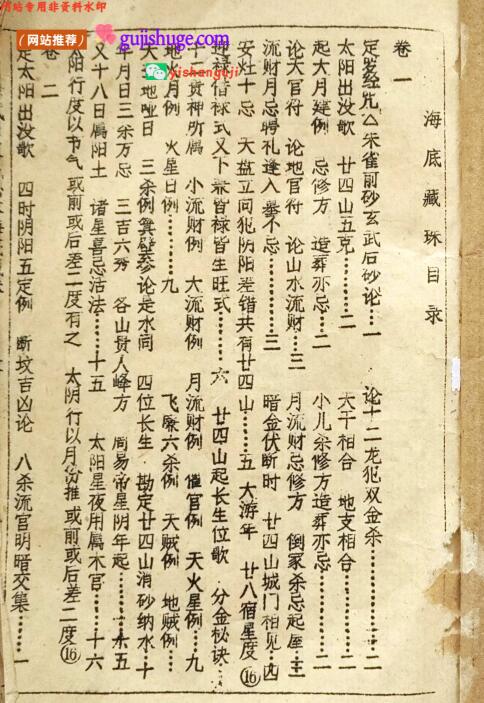 网站专用非资料水印
（网站推荐）
gujishuge.com
yishanguji
海底藏珠目录
卷一
定发经宄△朱雀前砂玄武后砂论……一 论十二龙犯双金杀………二
太阳出没歌 廿四山五克………二 大干相合 地支相合………二
起大月建例 忌修方 造葬亦忌……二 小儿杀修方造葬亦忌………二
论天官符 论地官符 论山水流财……三 月流财忌修方 倒家杀忌起屋…三
流财月忌聘礼逢入举不忌………三 暗金伏断时 廿四山城门相见…四
安灶十忌 天盘立向犯阴阳差错共有廿四山……五 大游年 廿八宿星度⑯
迎禄借禄式又下禄皆禄皆生旺式…六 廿四山起长生位歌 分金秘诀…
十二贵神所属 小流财例 大流财例 月流财例 催官例 天火星例…九
地火月例 火星日例………九 飞廉六杀例 天贼例 地贼例…
大 地哑日 三杀例箕壁参论是水同 四位长生 勘定廿四山消砂纳水…十
年月日三杀万忌 三吉六秀 各山贵人峰方 周易帝星阴年起……十五
又十八日属阳土 诸星喜忌活法……十五 太阳星夜用属木宫……十六
阳行度以节气或前或后差二度有之 太阴行以月份推或前或后差二度⑯
卷二
定太阳出没歌 四时阴阳五定例 断坟吉凶论 八杀流官明暗交集……一